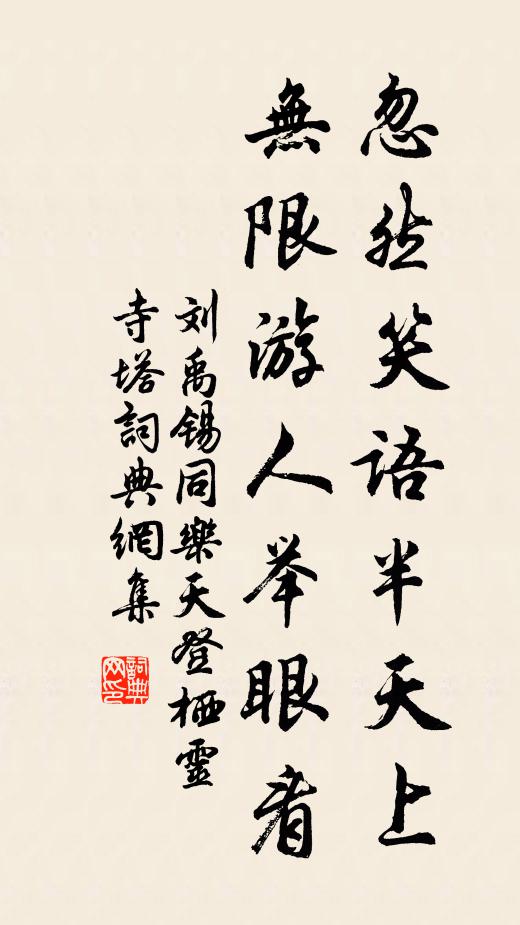 忽然笑语半天上
無限游人举眼看
刘禹锡同樂天登栖靈
寺塔詞典網集
詞典网印